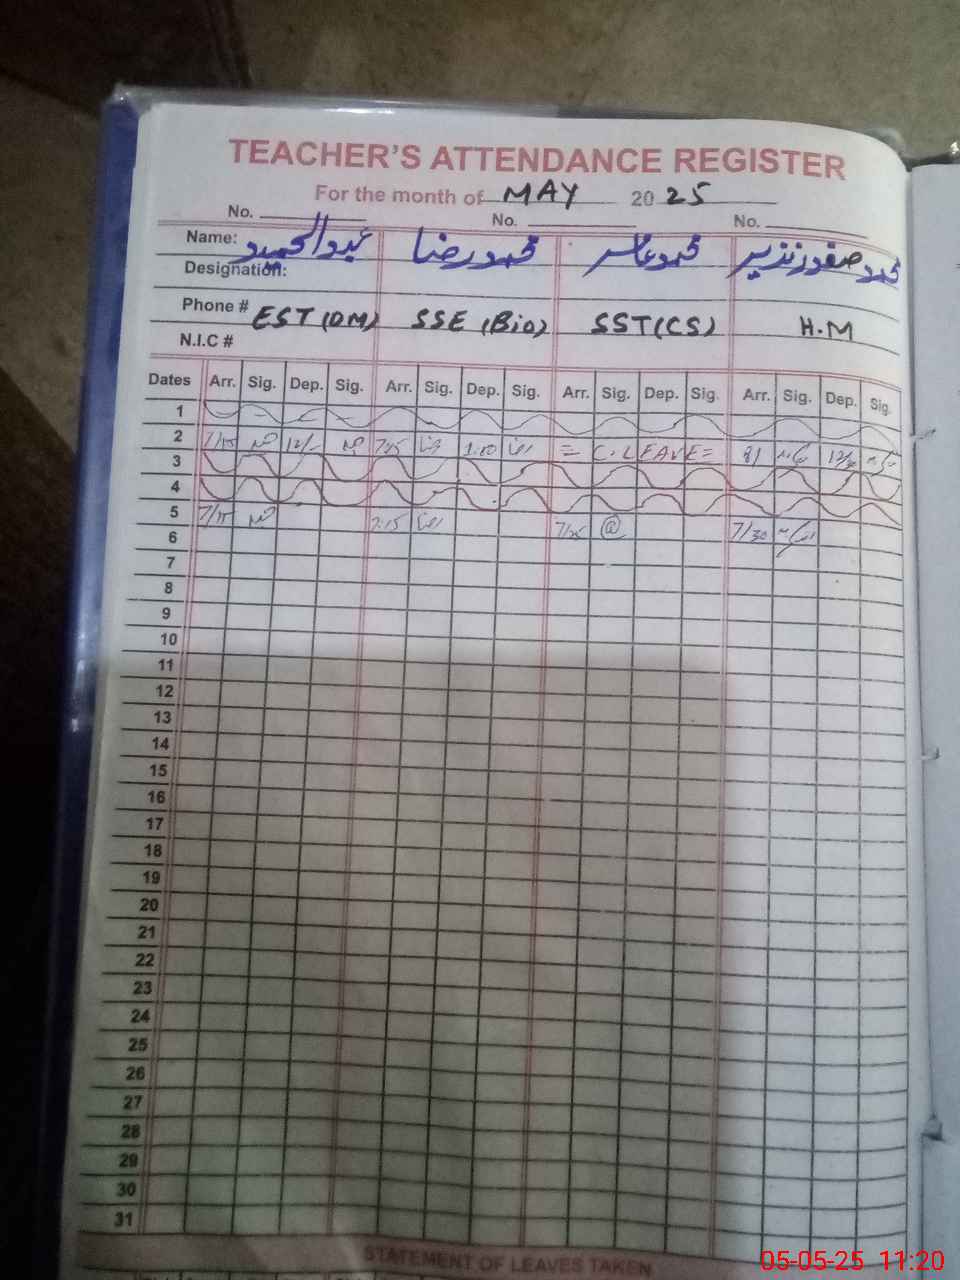 TEACHER'S ATTENDANCE REGISTER
For the month of MAY 2025
No. No. No.
Name: عبدالحمید محمد رضا محمد عامر محمد صفدر نذیر
Designation:
Phone # EST (DM) SSE (Bio) SST (CS) H.M
N.I.C #
Dates Arr. Sig. Dep. Sig. Arr. Sig. Dep. Sig. Arr. Sig. Dep. Sig. Arr. Sig. Dep. Sig.
1
2 7/15 12/- 7:25 1:10 = C. LEAVE = 8/
3
4
5 7/15 7:15 7/25 7/30
6
7
8
9
10
11
12
13
14
15
16
17
18
19
20
21
22
23
24
25
26
27
28
29
30
31
STATEMENT OF LEAVES TAKEN
05-05-25 11:20